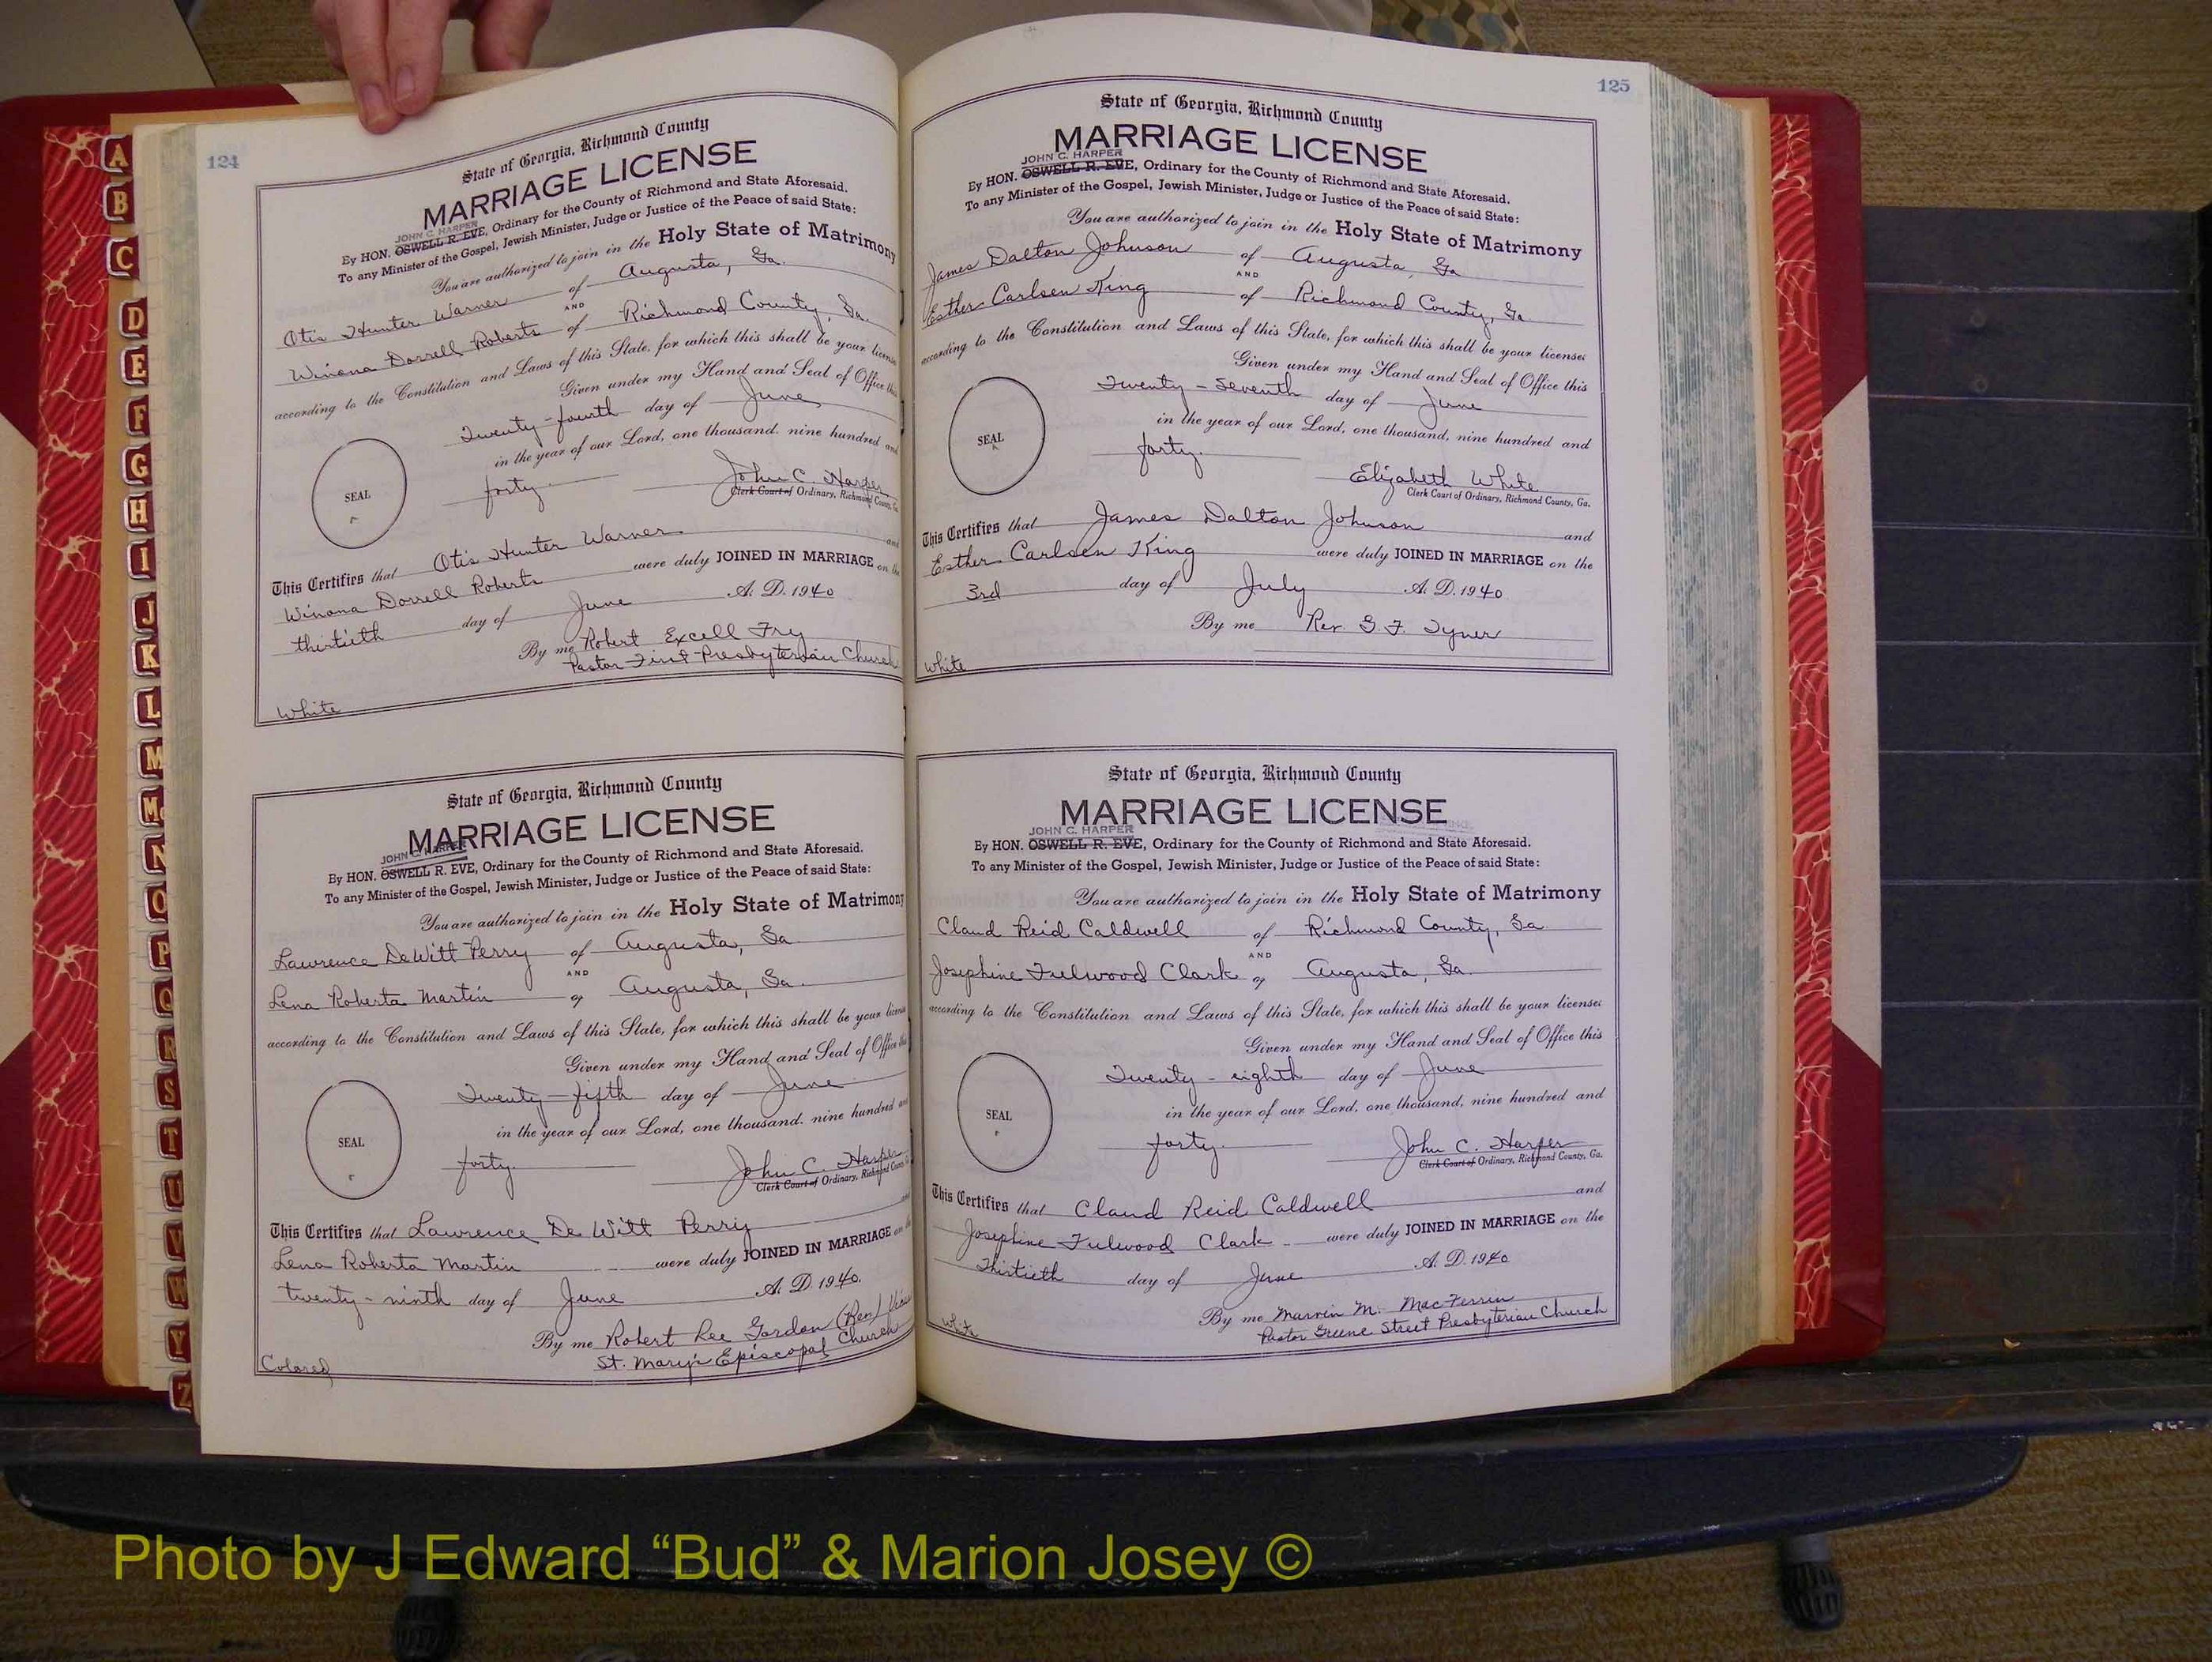 124
State of Georgia, Richmond County
MARRIAGE LICENSE
JOHN C. HARPER
By HON. OSWELL R. EVE, Ordinary for the County of Richmond and State Aforesaid.
To any Minister of the Gospel, Jewish Minister, Judge or Justice of the Peace of said State:
You are authorized to join in the Holy State of Matrimony
Otis Hunter Warner of Augusta, Ga.
AND
Winona Dorrell Roberts of Richmond County, Ga.
according to the Constitution and Laws of this State, for which this shall be your license
Given under my Hand and Seal of Office this
Twenty-fourth day of June
in the year of our Lord, one thousand. nine hundred and
SEAL
forty. John C. Harper
Clerk Court of Ordinary, Richmond County, Ga.
This Certifies that Otis Hunter Warner and
Winona Dorrell Roberts were duly JOINED IN MARRIAGE on the
thirtieth day of June A. D. 1940
By me Robert Excell Fry
Pastor First Presbyterian Church
White
State of Georgia, Richmond County
MARRIAGE LICENSE
JOHN C. HARPER
By HON. OSWELL R. EVE, Ordinary for the County of Richmond and State Aforesaid.
To any Minister of the Gospel, Jewish Minister, Judge or Justice of the Peace of said State:
You are authorized to join in the Holy State of Matrimony
Lawrence DeWitt Perry of Augusta, Ga.
AND
Lena Roberta Martin of Augusta, Ga.
according to the Constitution and Laws of this State, for which this shall be your license
Given under my Hand and Seal of Office this
Twenty-fifth day of June
in the year of our Lord, one thousand. nine hundred and
SEAL
forty. John C. Harper
Clerk Court of Ordinary, Richmond County, Ga.
This Certifies that Lawrence De Witt Perry and
Lena Roberta Martin were duly JOINED IN MARRIAGE on the
twenty-ninth day of June A. D. 1940.
By me Robert Lee Gordon (Rev)
St. Mary's Episcopal Church
Colored
125
State of Georgia, Richmond County
MARRIAGE LICENSE
JOHN C. HARPER
By HON. OSWELL R. EVE, Ordinary for the County of Richmond and State Aforesaid.
To any Minister of the Gospel, Jewish Minister, Judge or Justice of the Peace of said State:
You are authorized to join in the Holy State of Matrimony
James Dalton Johnson of Augusta, Ga
AND
Esther Carlsen King of Richmond County, Ga
according to the Constitution and Laws of this State, for which this shall be your license:
Given under my Hand and Seal of Office this
Twenty-seventh day of June
in the year of our Lord, one thousand, nine hundred and
SEAL
forty.
Elizabeth White
Clerk Court of Ordinary, Richmond County, Ga.
This Certifies that James Dalton Johnson and
Esther Carlsen King were duly JOINED IN MARRIAGE on the
3rd day of July A. D. 1940
By me Rev. G. F. Tyner
White
State of Georgia, Richmond County
MARRIAGE LICENSE
JOHN C. HARPER
By HON. OSWELL R. EVE, Ordinary for the County of Richmond and State Aforesaid.
To any Minister of the Gospel, Jewish Minister, Judge or Justice of the Peace of said State:
You are authorized to join in the Holy State of Matrimony
Claud Reid Caldwell of Richmond County, Ga
AND
Josephine Fulwood Clark of Augusta, Ga.
according to the Constitution and Laws of this State, for which this shall be your license:
Given under my Hand and Seal of Office this
Twenty-eighth day of June
in the year of our Lord, one thousand, nine hundred and
SEAL
forty. John C. Harper
Clerk Court of Ordinary, Richmond County, Ga.
This Certifies that Claud Reid Caldwell and
Josephine Fulwood Clark were duly JOINED IN MARRIAGE on the
Thirtieth day of June A. D. 1940
By me Marvin M. MacFerrin
Pastor Greene Street Presbyterian Church
White
A
B
C
D
E
F
G
H
I
J
K
L
M
Mc
N
O
P
Q
R
S
T
U
V
W
Y
Z
Photo by J Edward “Bud” & Marion Josey ©